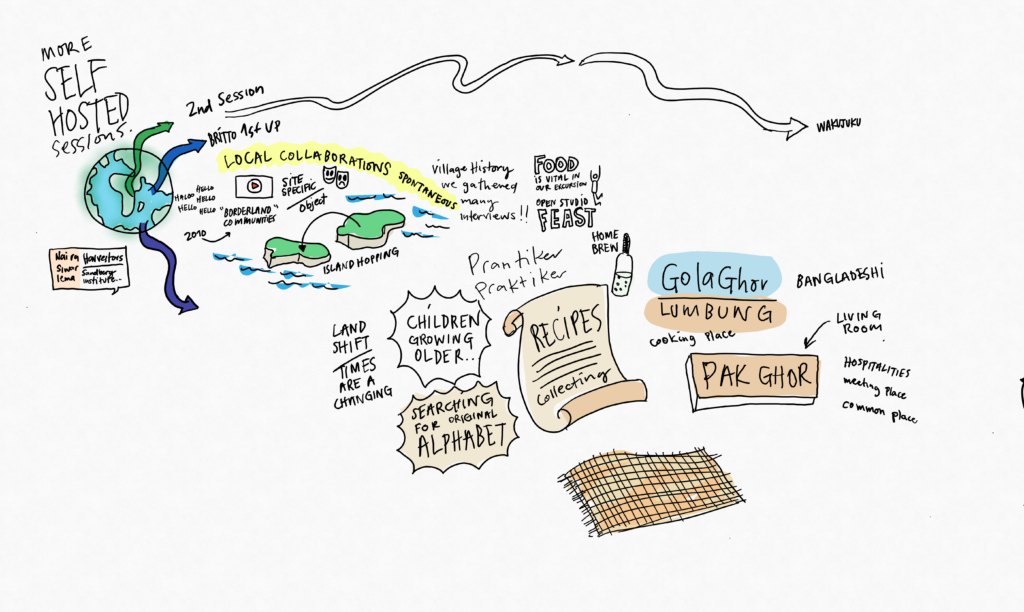 MORE
SELF
HOSTED
sessions.
2nd Session
BRITTO 1st UP
LOCAL COLLABORATIONS SPONTANEOUS
HALOO HELLO
HELLO
HELLO HELLO
"BORDERLAND"
COMMUNITIES
2010
SITE
SPECIFIC
Object
ISLAND HOPPING
Village History
we gathered
many
interviews!!
FOOD
IS VITAL IN
OUR EXCURSION
OPEN STUDIO
FEAST
HOME
BREW
WAKUJUKU
Naira
Siwar
lema
Harvestors
Sandberg
institute..
Prantiker
Praktiker
LAND
SHIFT
TIMES
ARE A
CHANGING
CHILDREN
GROWING
OLDER..
SEARCHING
FOR ORIGINAL
ALPHABET
RECIPES
Collecting
GolaGhor
LUMBUNG
cooking place
BANGLADESHI
LIVING
ROOM
PAK GHOR
HOSPITALITIES
meeting place
common place